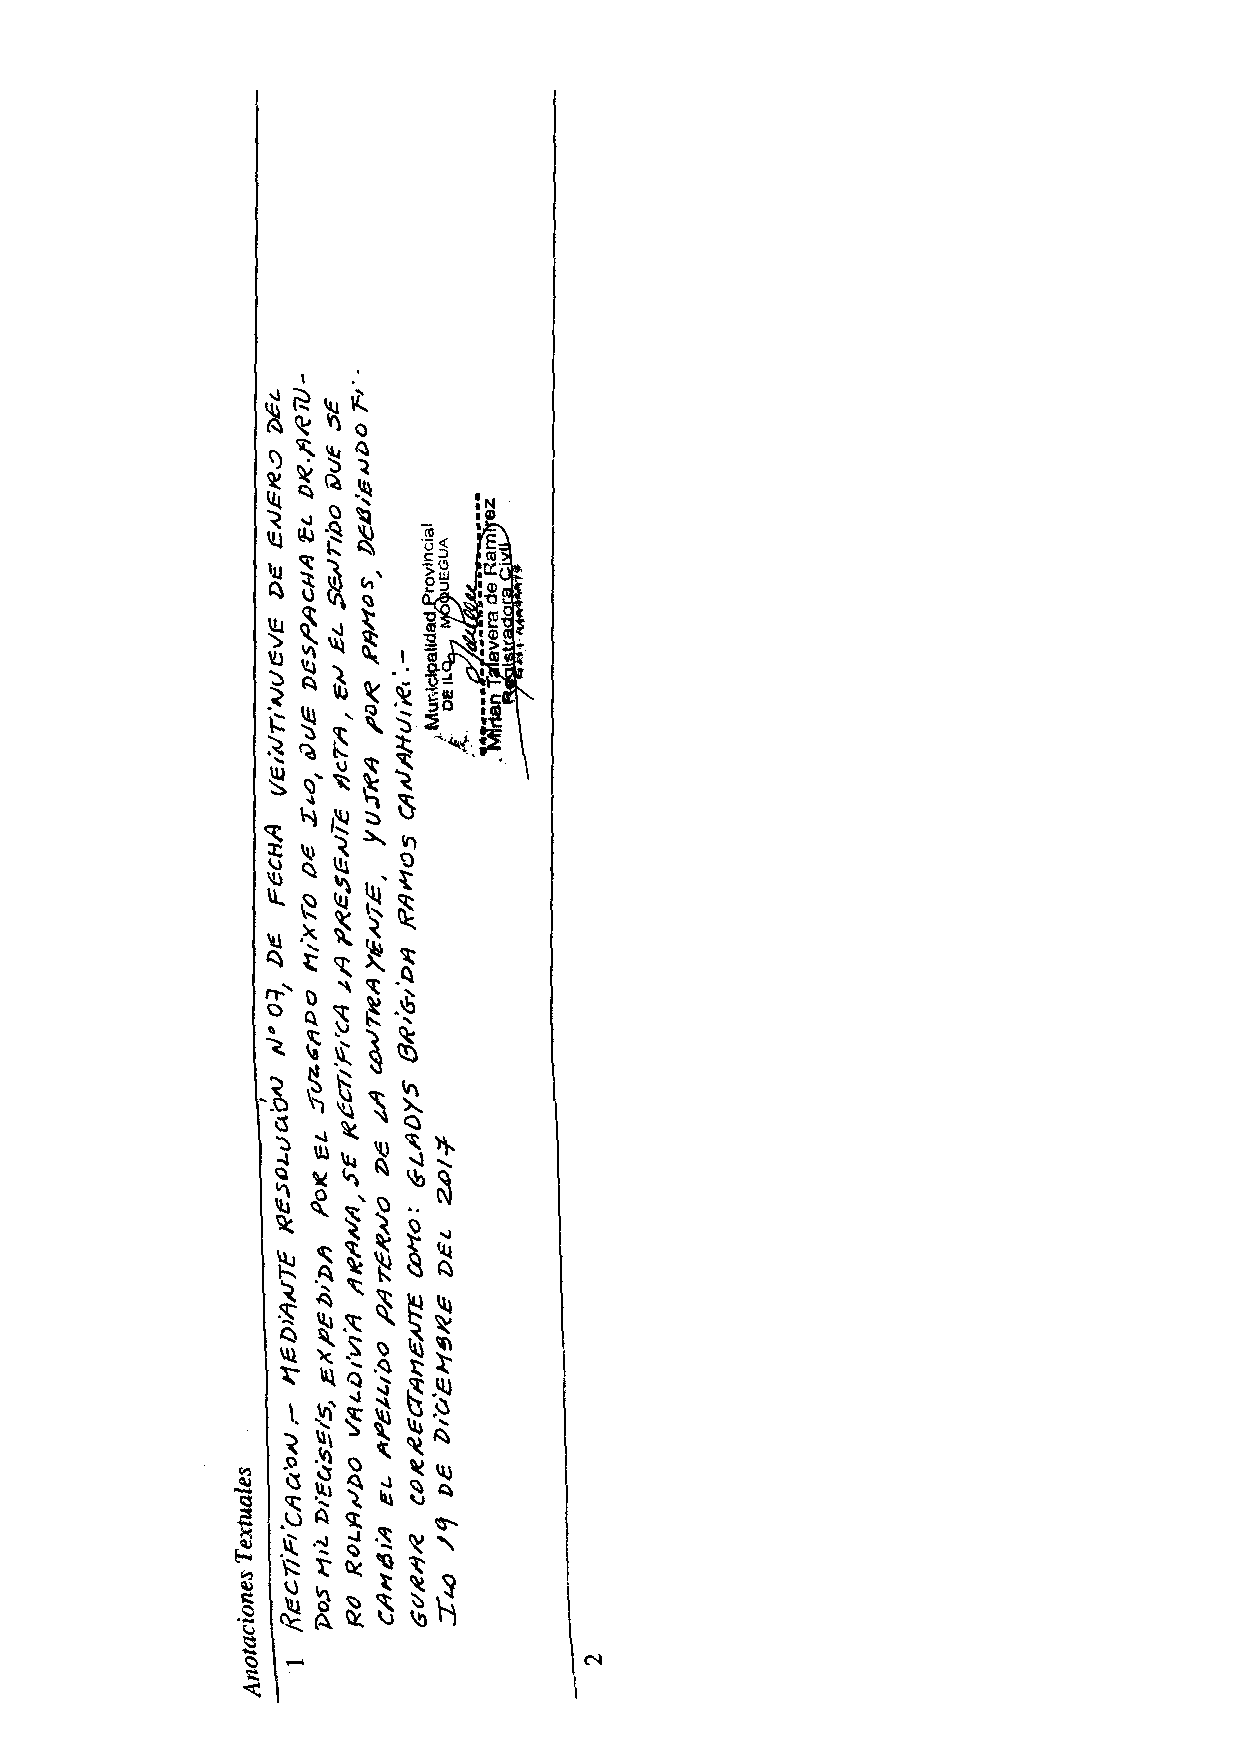 Anotaciones Textuales
1 RECTIFICACIÓN.- MEDIANTE RESOLUCIÓN N° 07, DE FECHA VEINTINUEVE DE ENERO DEL
DOS MIL DIECISEIS, EXPEDIDA POR EL JUZGADO MIXTO DE ILO, QUE DESPACHA EL DR. ARTU-
RO ROLANDO VALDIVIA ARANA, SE RECTIFICA LA PRESENTE ACTA, EN EL SENTIDO QUE SE
CAMBIA EL APELLIDO PATERNO DE LA CONTRAYENTE, YUJRA POR RAMOS, DEBIENDO FI-
GURAR CORRECTAMENTE COMO: GLADYS BRIGIDA RAMOS CANAHUIRI.-
ILO 19 DE DICIEMBRE DEL 2017
Municipalidad Provincial
DE ILO MOQUEGUA
Mirian Talavera de Ramirez
Registradora Civil
2